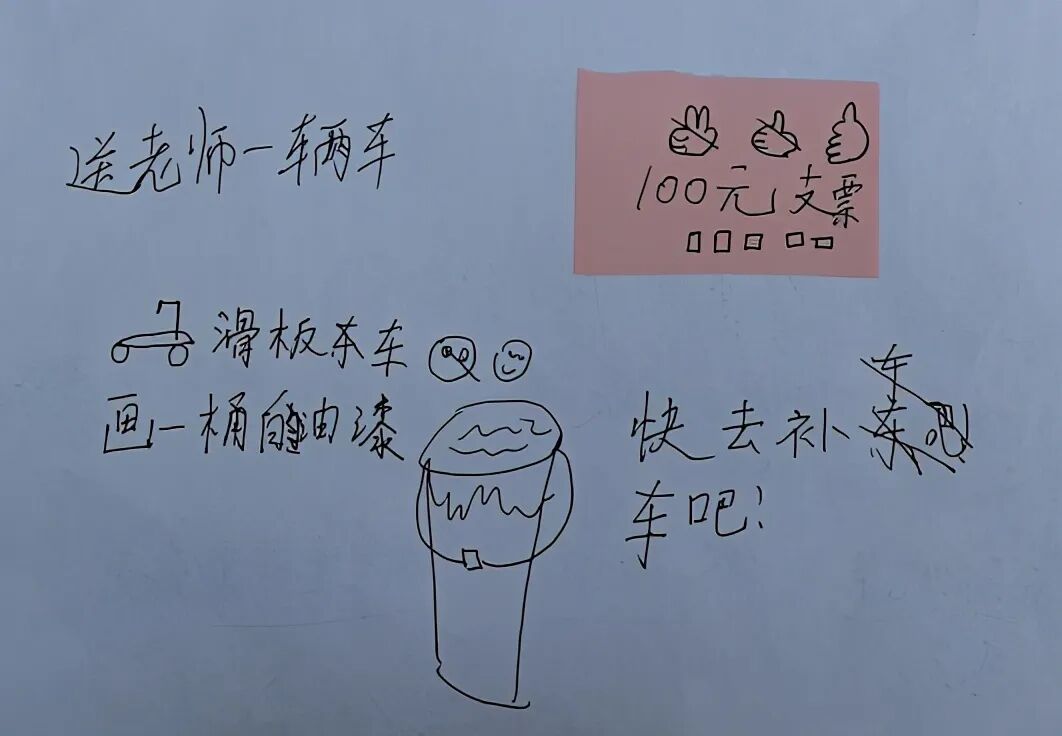 送老师一辆车
100元支票
滑板车
画一桶白油漆
快去补
车吧!